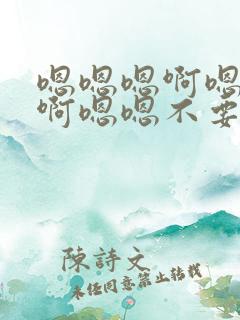 嗯嗯嗯啊嗯
啊嗯嗯不要
陳詩文
未經同意禁止轉載